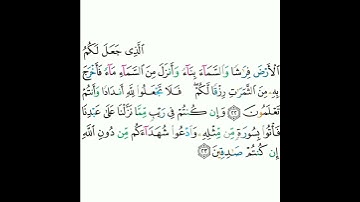 الَّذِى جَعَلَ لَكُمُ
الْأَرْضَ فِرَٰشًا وَالسَّمَآءَ بِنَآءً وَأَنزَلَ مِنَ السَّمَآءِ مَآءً فَأَخْرَجَ
بِهِۦ مِنَ الثَّمَرَٰتِ رِزْقًا لَّكُمْ ۖ فَلَا تَجْعَلُوا۟ لِلَّهِ أَندَادًا وَأَنتُمْ
تَعْلَمُونَ ﴿٢٢﴾ وَإِن كُنتُمْ فِى رَيْبٍ مِّمَّا نَزَّلْنَا عَلَىٰ عَبْدِنَا
فَأْتُوا۟ بِسُورَةٍ مِّن مِّثْلِهِۦ وَادْعُوا۟ شُهَدَآءَكُم مِّن دُونِ اللَّهِ
إِن كُنتُمْ صَٰدِقِينَ ﴿٢٣﴾